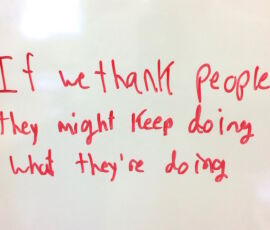 If we thank people
they might keep doing
what they're doing